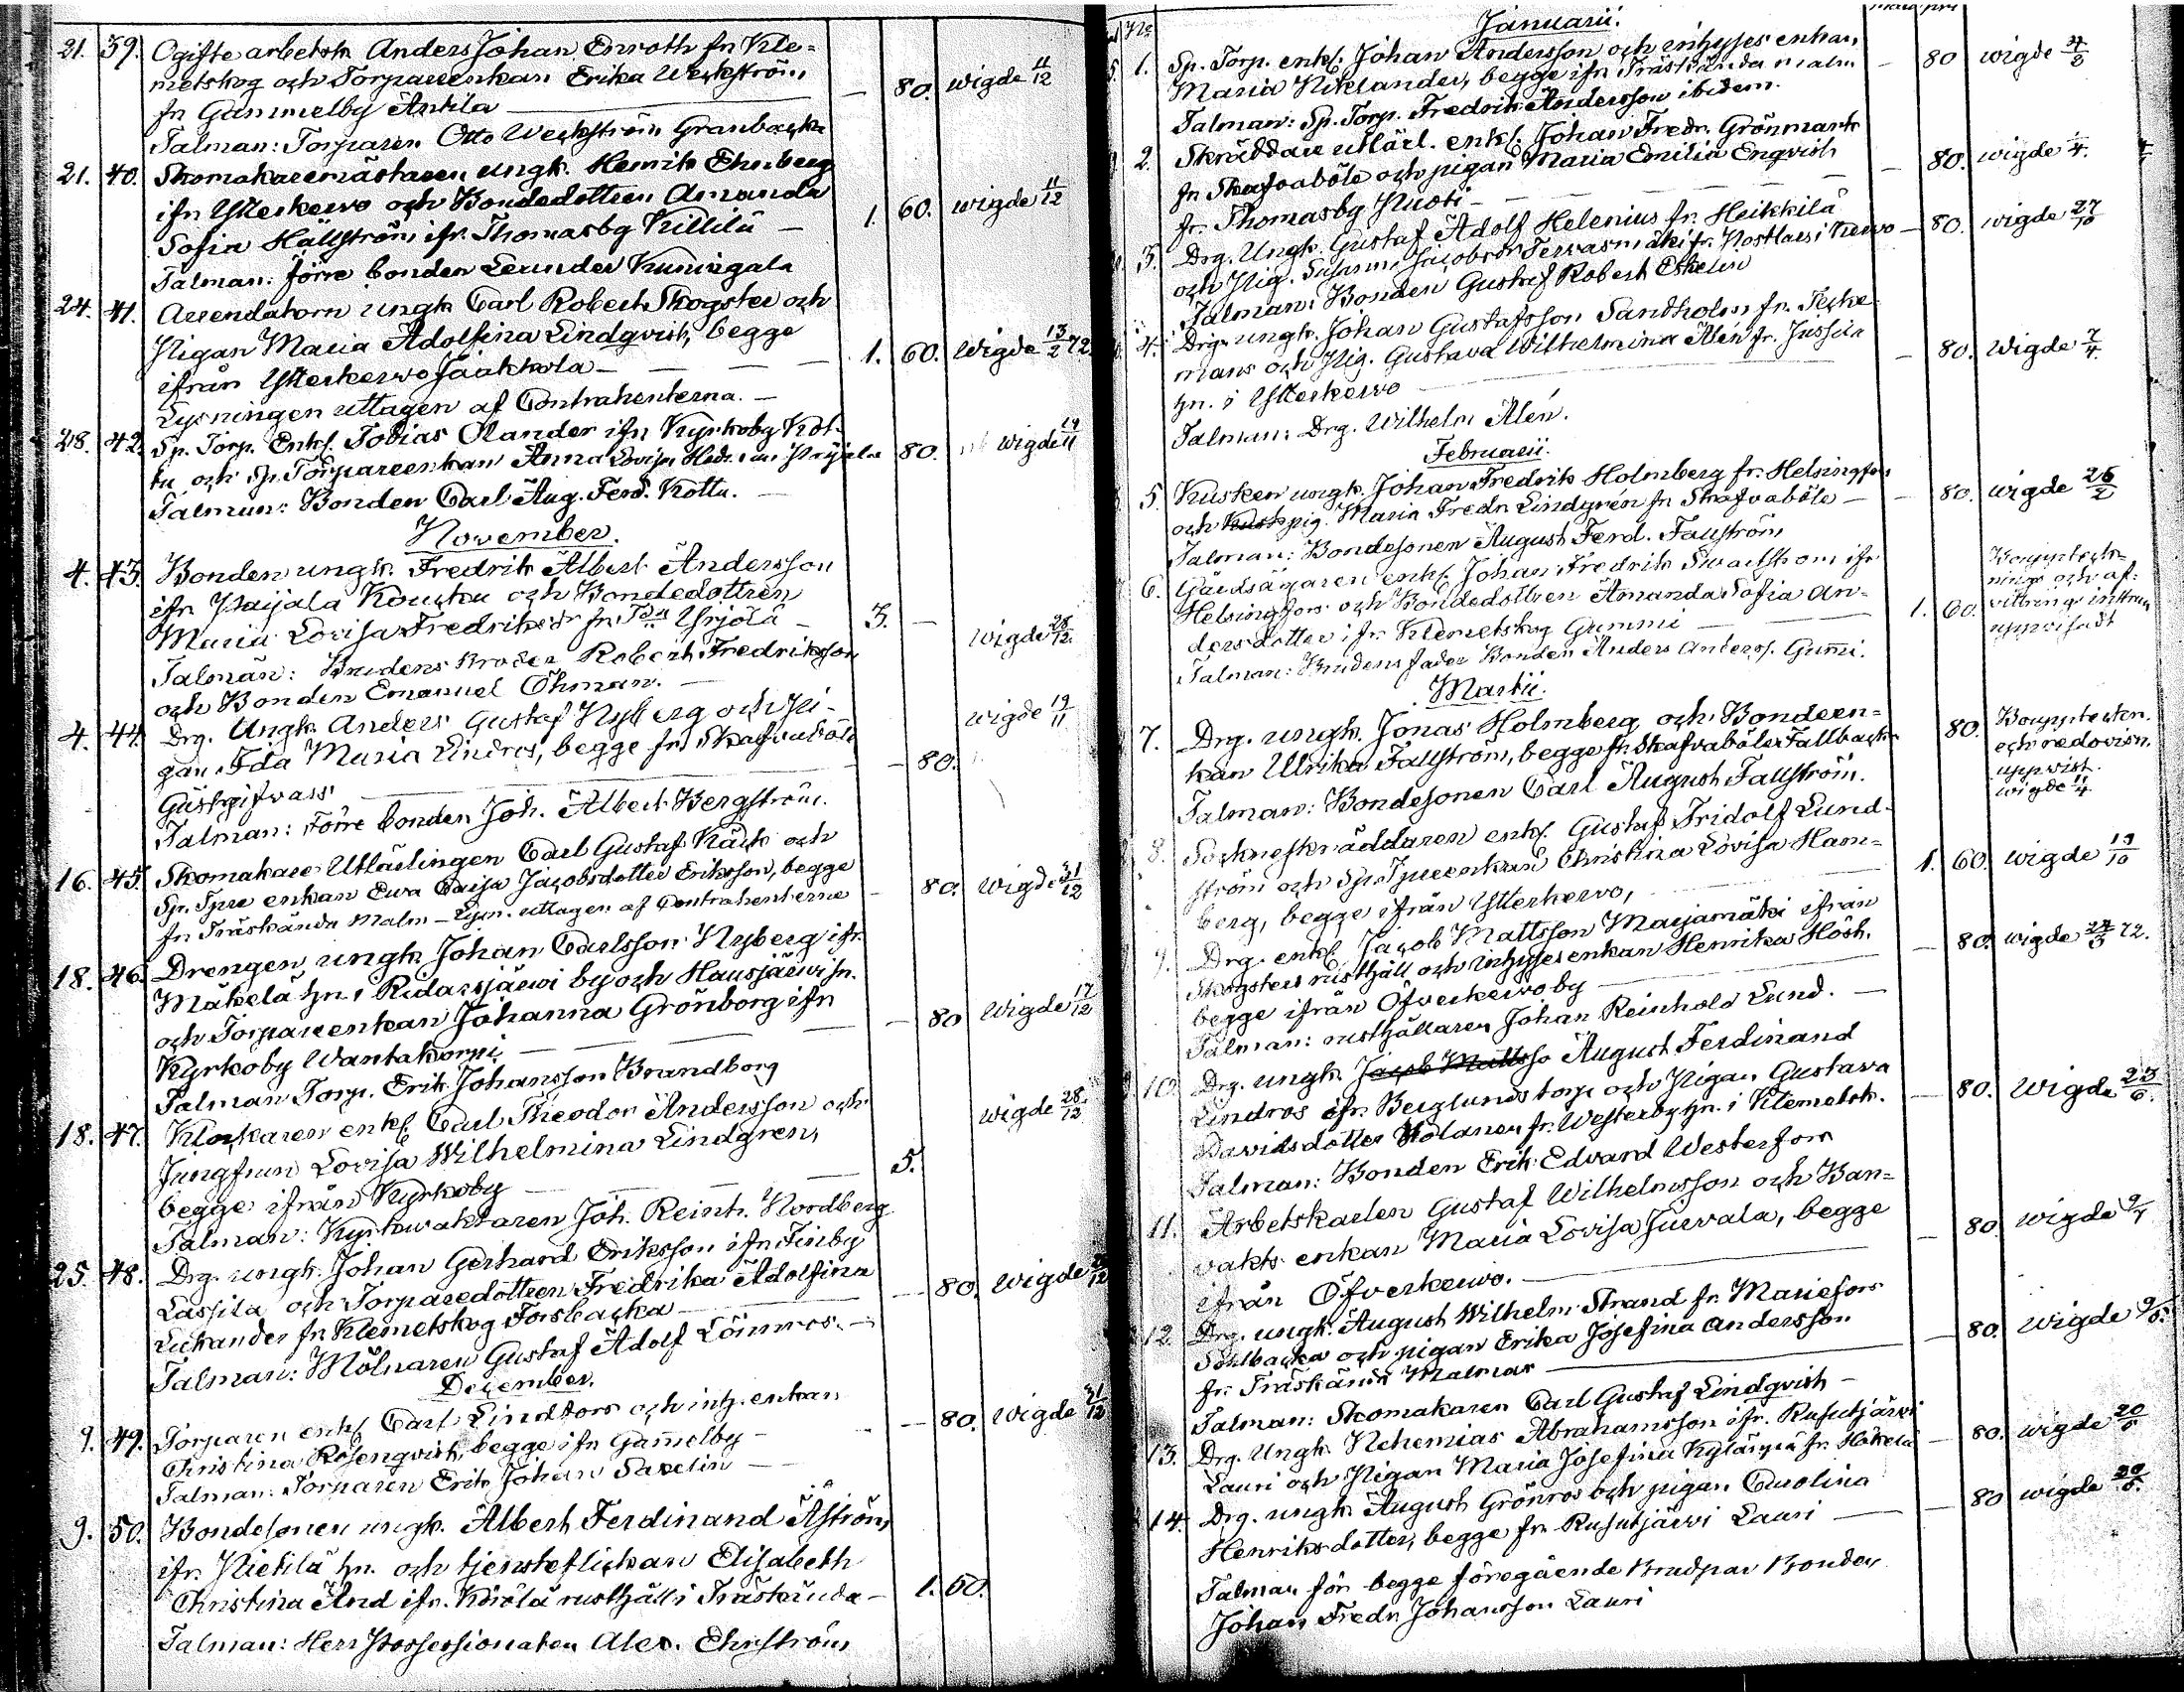 21. 39. Ogifte arbetsk. Anders Johan Enroth fr. Kle=
metskog och Torpareenkan Erika Weckström,
fr. Gammelby Anttila — — 80. wigde 11/12
Talman: Torparen Otto Weckström Granbacka
21. 40. Skomakaremästaren ungk. Henrik Ehnberg
ifr. Ytterkervo och Bondedottren Amanda
Sofia Hällström ifr. Thomasby Killilä — 1. 60. wigde 11/12
Talman: förre bonden Leander Kuningala
24. 41. Arrendatorn ungk. Carl Robert Skogster och
Pigan Maria Adolfina Lindqvist, begge
ifrån Ytterkerwo Jaakkola — — — 1. 60. wigde 13/2 72.
Lysningen uttagen af Contrahenterna. —
28. 42. Sp. Torp. Enkl. Tobias Olander ifr. Kyrkoby Kot-
tu och Sp. Torpareenkan Anna Lovisa 80. wigde 19/11
Talman: Bonden Carl Aug. Ferd. Kottu. —
November.
4. 43. Bonden ungk. Fredrik Albert Andersson
ifr. Paijala Koucku och Bondedottren
Maria Lovisa Fredriksdr fr. Yrjölä — 3. — wigde 28/12
Talman: Brudens Broder Robert Fredriksson
och Bonden Emanuel Öhman. —
4. 44. Drg. Ungk. Anders Gustaf Nyberg och Pi-
gan Ida Maria Lindros, begge fr. Skafvaböle wigde 19/11
Gästgifvars — — 80.
Talman: Förre bonden Joh. Albert Bergström.
16. 45. Skomakare Utlärlingen Carl Gustaf Käck och
Sp. Tpre enkan Ewa Caisa Jacobsdotter Eriksson, begge
fr. Träskända Malm — Lysn. uttagen af Contrahenterna — 80. wigde 31/12
18. 46. Drengen ungk. Johan Carlsson Nyberg ifr.
Mäkelä hn. i Ridasjärwi by och Hausjärwi sn.
och Torpareenkan Johanna Grönborg ifr.
Kyrkoby Wantakorpi — — — — 80 wigde 17/12
Talman Torp. Erik Johansson Brandborg
18. 47. Klockaren enkl. Carl Theodor Andersson och
Jungfrun Lovisa Wilhelmina Lindgren, wigde 28/12
begge ifrån Kyrkoby — — — — 5.
Talman: Kyrkwaktaren Joh. Reinh. Nordberg
25. 48. Drg. ungk. Johan Gerhard Eriksson ifr. Finby
Lassila och Torparedottren Fredrika Adolfina
Lukander fr. Klemetskog Forsbacka — — 80. wigde
Talman: Mölnaren Gustaf Adolf Lönnros. —
December.
9. 49. Torparen enkl. Carl Lindfors och inh. enkan
Christina Rosenqvist, begge ifr. Gamelby — — 80. wigde 31/12
Talman: Torparen Erik Johan Saxelin —
9. 50. Bondesonen ungk. Albert Ferdinand Åström,
ifr. Pietilä hn. och tjensteflickan Elisabeth
Christina And ifr. Kärölä rusthåll i Träskända — 1. 60.
Talman: Herr Possessionaten Alex. Ehrström
Januarii.
1. Sp. Torp. enkl. Johan Andersson och inhyses enkan,
Maria Niklander, begge ifr. Träskända malm — 80 wigde
Talman: Sp. Torp. Fredrik Andersson ibidem.
2. Skräddare utlärl. enkl. Johan Fredr. Grönmark
fr. Skafvaböle och pigan Maria Emilia Enqvist
fr. Thomasby Ruoti — — — — 80. wigde
3. Drg. Ungk. Gustaf Adolf Helenius fr. Heikkilä
och Pig. Susanna Jacobsdr Terwasmäki fr. Nostlars i Kerwo — 80. wigde 27/10
Talman: Bonden Gustaf Robert Eskelin
4. Drg. ungk. Johan Gustafsson Sandholm fr. Tecke-
mans och Pig. Gustava Wilhelmina Alén fr. Jussila
hn. i Ytterkerwo — — 80. wigde 7/4.
Talman: Drg. Wilhelm Alén.
Februarii.
5. Kusken ungk. Johan Fredrik Holmberg fr. Helsingfors
och pig. Maria Fredr. Lindgren fr. Skafvaböle — — 80. wigde 26/2
Talman: Bondesonen August Ferd. Fallström
6. Gårdsägaren enkl. Johan Fredrik Swartström ifr
Helsingfors och Bondedottren Amanda Sofia An-
dersdotter ifr. Klemetskog Gummi — — 1. 60. Bouppteck-
nings och af=
vittrings instrum
uppvisadt
Talman: Brudens fader Bonden Anders Anderss. Gumi.
Martii.
7. Drg. ungk. Jonas Holmberg och Bondeen=
kan Ulrika Fallström, begge fr. Skafvaböle Fallbacka 80. Bouppteckn.
och redovisn.
uppvist.
wigde 11/4.
Talman: Bondesonen Carl August Fallström.
8. Sockneskräddaren enkl. Gustaf Fridolf Lund-
ström och Sp. Tpreenkan Christina Lovisa Ham=
berg, begge ifrån Ytterkervo, — 1. 60. wigde 19/10
9. Drg. enkl. Jacob Mattsson Marjamäki ifrån
Skogsters rusthåll och inhyses enkan Henrika Höök,
begge ifrån Öfverkerwo by — — 80. wigde 72.
Talman: rusthållaren Johan Reinhold Lund. —
10. Drg. ungk. Jacob Mattsso August Ferdinand
Lindros ifr. Berglunds torp och Pigan Gustava
Davidsdotter Holanen fr. Westerby hn. i Klemetsk. — 80. wigde
Talman: Bonden Erik Edvard Westerfors
11. Arbetskarlen Gustaf Wilhelmsson och Ban=
vakts enkan Maria Lovisa Juevala, begge
ifrån Öfverkerwo. — — 80 wigde
12. Drg. ungk. August Wilhelm Strand fr. Mariefors
Sohlbacka och pigan Erika Josefina Andersson
fr. Träskända Malmar — — 80. wigde
Talman: Skomakaren Carl Gustaf Lindqvist —
13. Drg. Ungk. Nehemias Abrahamsson ifr. Rusutjärwi
Lauri och Pigan Maria Josefina Kyläsepä fr. Hökelä — 80. wigde
14. Drg. ungk. August Grönros och pigan Carolina
Henriksdotter, begge fr. Rusutjärwi Lauri — — 80 wigde
Talman för begge föregående Brudpar Bonden
Johan Fredr. Johansson Lauri